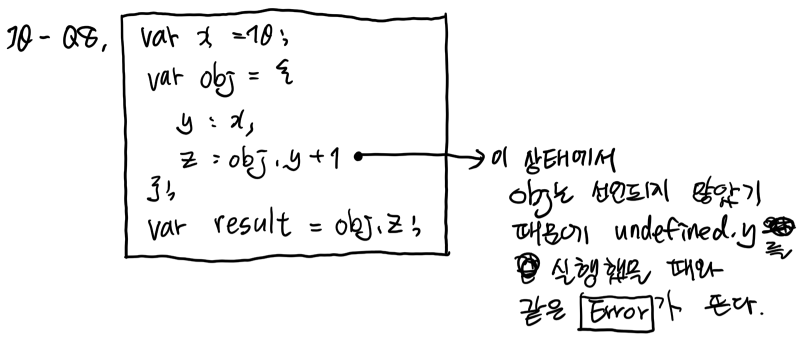 JQ - Q8.
var x = 10;
var obj = {
y : x,
z : obj.y + 1
};
var result = obj.z;
이 상태에서
obj는 선언되지 않았기
때문에 undefined.y를
실행했을 때와
같은 Error가 뜬다.